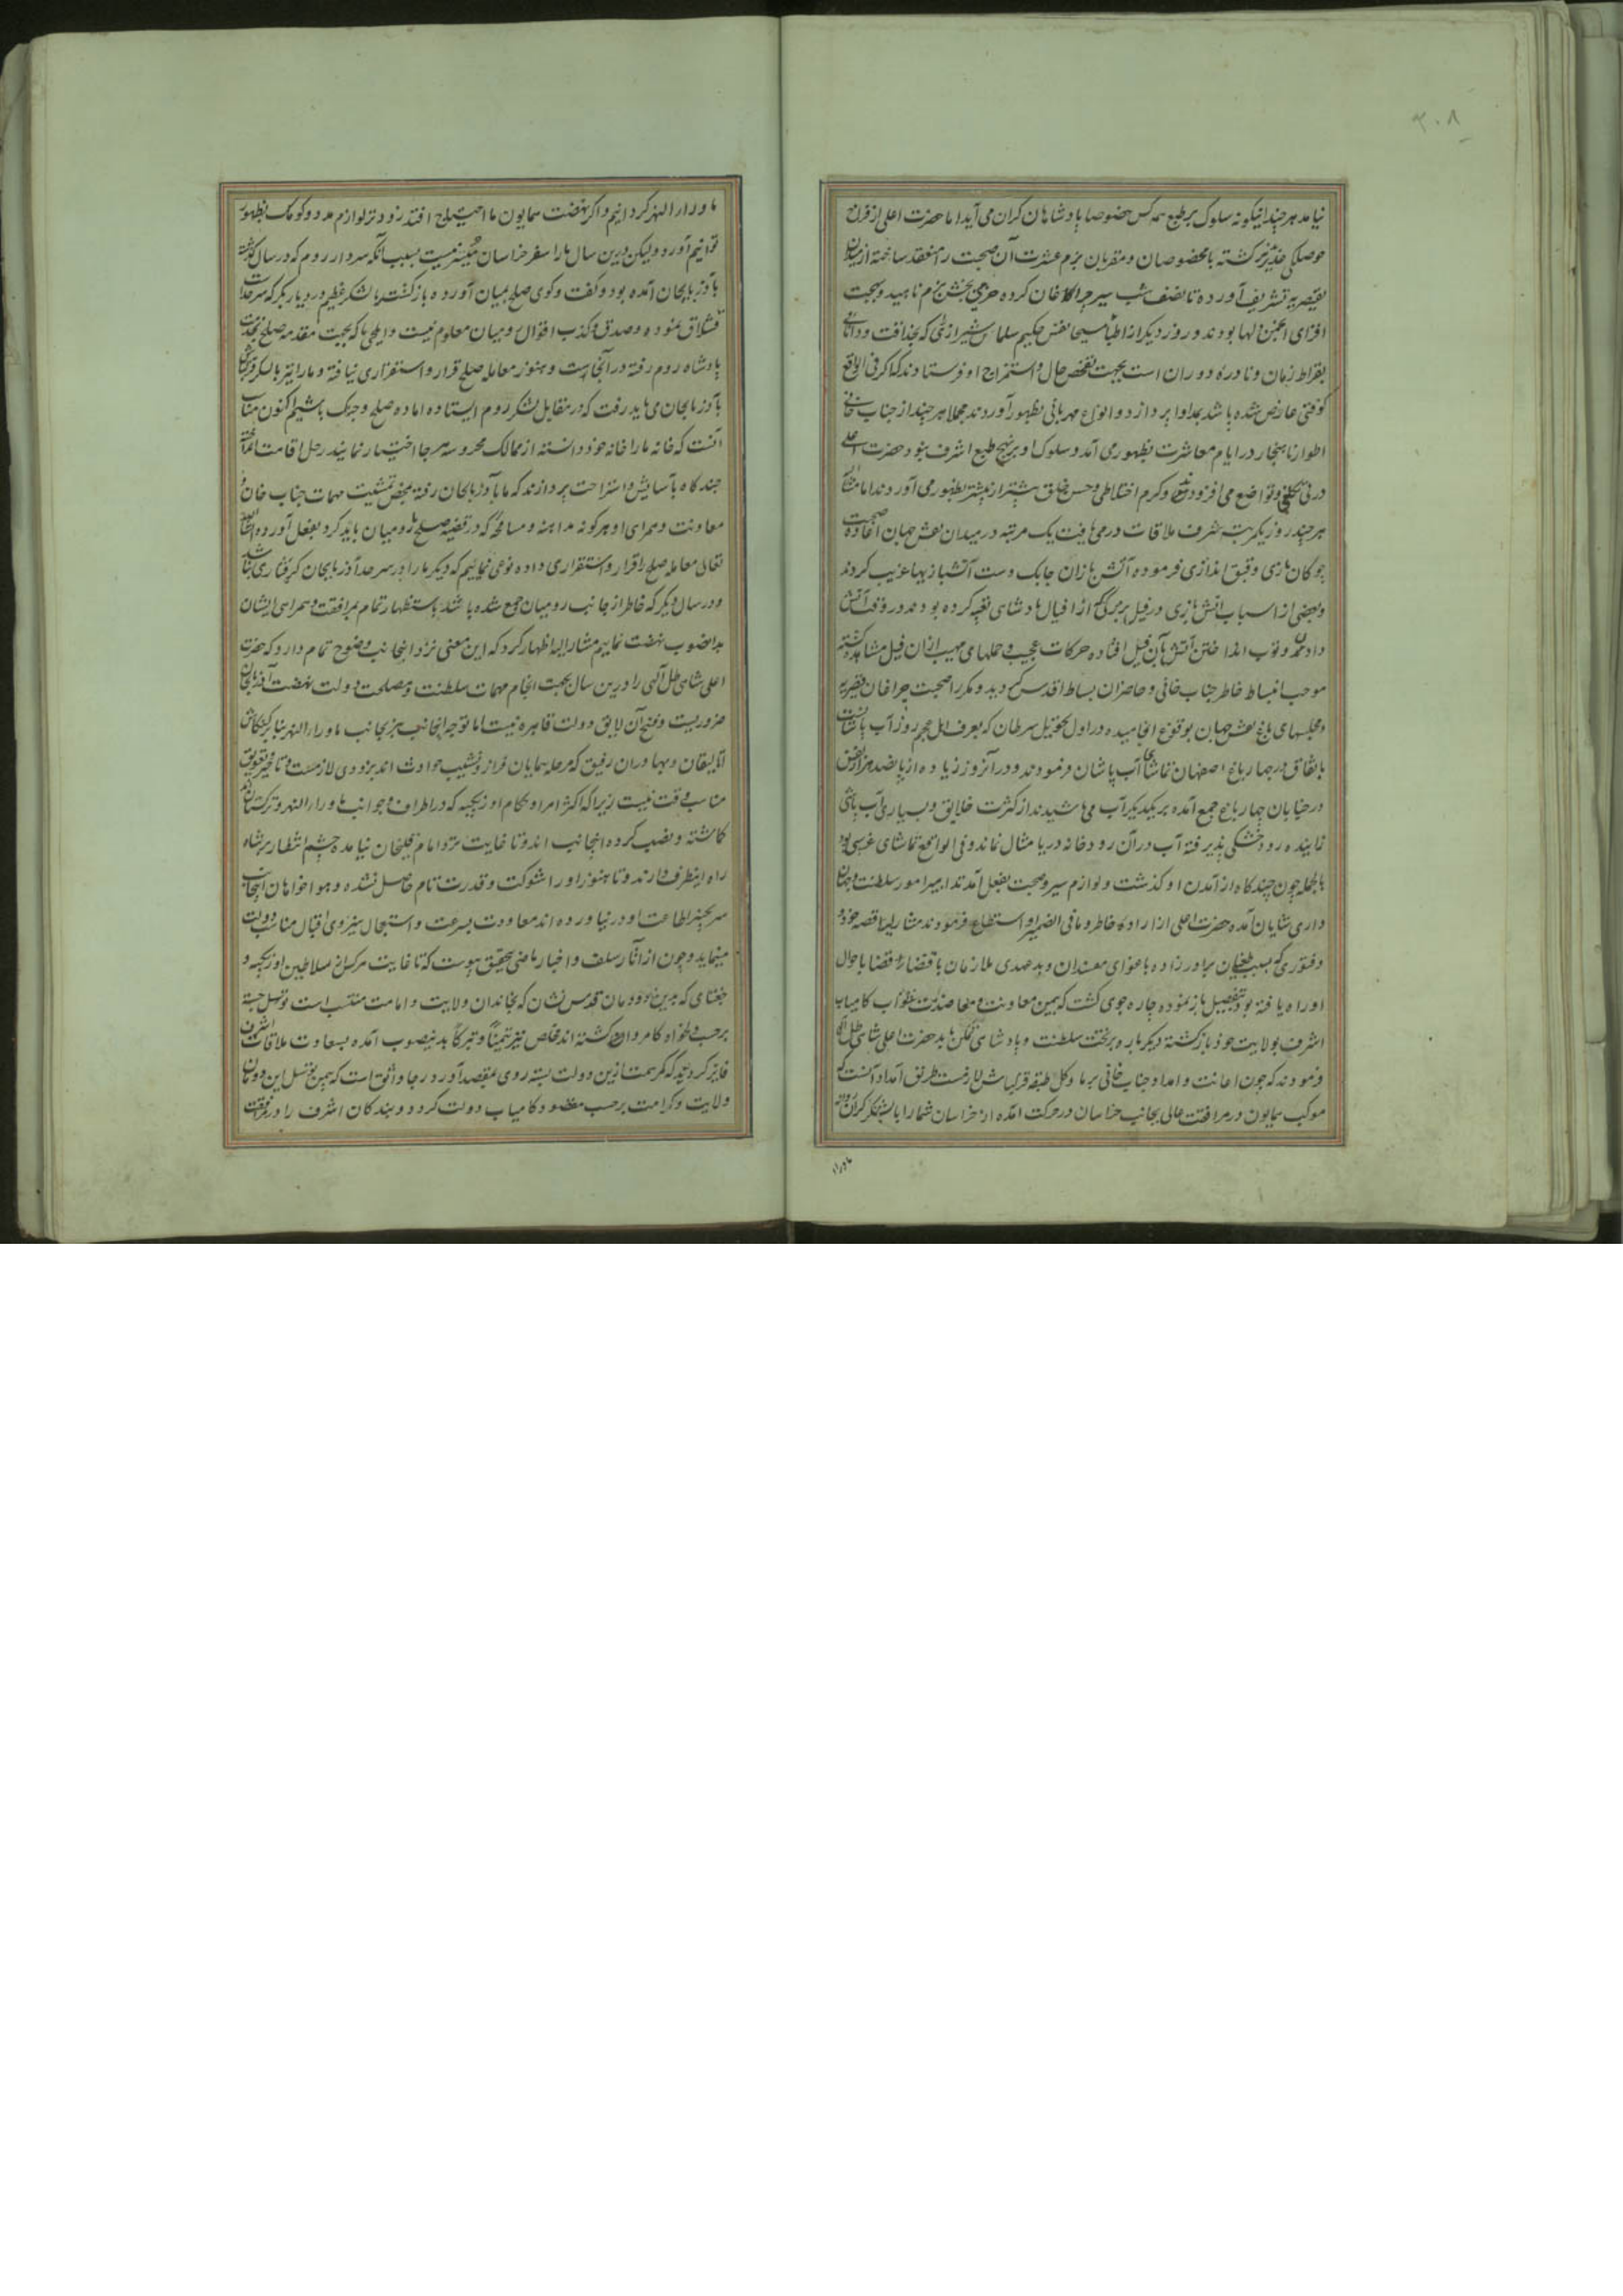 ۳۰۸
نیامد هر چند اینگونه سلوک بر طبع همه کس خصوصا پادشاهان گران می آید اما حضرت اعلی از فراخ
حوصلگی متغیر نگشته با مخصوصان و مقربان بزم عشرت آن صحبت را منعقد ساخته از میدان
بقیصریه تشریف آورده تا نصف شب سیر چراغان کرده خرمی بخش بزم ناهید و بهجت
افزای انجمن دلها بودند و روز دیگر از اطبا مسیحا نفس حکیم سلمان شیرازی که بحذاقت و دانائی
بقراط زمان و نادره دوران است بجهت تفحص حال و استمزاج او فرستادند که اگر فی الواقع
کوفتی عارض شده باشد بمداوا پردازد و انواع مهربانی بظهور آوردند مجملا هر چند از جناب خانی
اطوار ناهنجار در ایام معاشرت بظهور می آمد و سلوک او بر نهج طبع اشرف نبود حضرت اعلی
در بی تکلفی و تواضع می افزودند و کرم اختلاطی و حسن خلق بیشتر از پیشتر بظهور می آوردند
هر چند روز یکمرتبه شرف ملاقات در می یافت یک مرتبه در میدان نقش جهان صحبت
چوگان بازی و قبق اندازی فرموده آتش بازان چابک دست آتشبازیهای غریب کردند
و بعضی از اسباب آتش بازی در فیل بزرگی که از افیال پادشاهی تعبیه کرده بودند در وقت آتش
دادن و توپ انداختن آتش بآن فیل افتاده حرکات عجیب و حملهای مهیب از ان فیل مشاهده گشته
موجب انبساط خاطر جناب خانی و حاضران بساط اقدس گردید و مکررا صحبت چراغان قیصریه
و مجلسهای باغ نقش جهان بوقوع انجامیده در اول تحویل سرطان که بعرف اهل عجم روز آب پاشانست
باتفاق در چهار باغ اصفهان تماشای آب پاشان فرمودند و در آنروز زیاده از یا نصد هزار نفس
در خیابان چهار باغ جمع آمده بر یکدیگر آب می پاشیدند از کثرت خلایق و بسیاری آب پاشی
زاینده رود خشکی پذیرفته آب در آن رودخانه دریا مثال نماند و فی الواقع تماشای غریبی بود
بالجمله چون چند گاه از آمدن او گذشت و لوازم سیر و صحبت بفعل آمد تدابیر امور سلطنت و جهان
داری شایان آمده حضرت اعلی از اراده خاطر و مافی الضمیر او استطلاع فرمودند مشار الیه قصه خود
و فتوری که بسبب طغیان برادرزاده باغوای مفسدان و بد عهدی ملازمان باقتضاء قضا باحوال
او راه یافته بود بتفصیل باز نموده چاره جوی گشت که بیمن معاونت و معاضدت نواب کامیاب
اشرف بولایت خود باز گشته دیگر باره بر تخت سلطنت و پادشاهی تمکن یابد حضرت اعلی شاهی ظل اللهی
فرمودند که چون اعانت و امداد جناب خانی بر ما و کل طبقه قزلباش لازمست طریق امداد آنست که
موکب همایون در مرافقت عالی بجانب خراسان در حرکت آمده از خراسان شما را با لشکر گران روانه
ماورا
ماوراء النهر گردانیم و اگر نهضت همایون ما احتیاج افتد زودتر لوازم مدد و کومک بظهور
توانیم آورد و لیکن درین سال ما را سفر خراسان میسر نیست بسبب آنکه سردار روم که در سال گذشته
بآذربایجان آمده بود و گفت و گوی صلح بمیان آورده بازگشت با لشکر عظیم در دیار بکر که سرحد است
قشلاق نموده و صدق و کذب اقوال رومیان معلوم نیست و ایلچی ما که بجهت مقدمه صلح بخدمت
پادشاه روم رفته در آنجاست و هنوز معامله صلح قرار و استقراری نیافته و ما را نیز با لشکر قزلباش
بآذربایجان می باید رفت که در مقابل لشکر روم ایستاده اماده صلح و جنگ باشیم اکنون مناسب
آنست که خانه ما را خانه خود دانسته از ممالک محروسه هر جا اختیار نمایند رحل اقامت انداخته
چند گاه بآسایش و استراحت پردازند که ما بآذربایجان رفته بمحض تمشیت مهمات جناب خان و
معاونت و همراهی او هر گونه مداهنه و مسامحه که در قضیه صلح رومیان باید کرد بفعل آورده ان شاء الله
تعالی معامله صلح را قرار و استقراری داده نوعی نمائیم که دیگر ما را در سرحد آذربایجان گرفتاری نباشد
و در سال دیگر که خاطر از جانب رومیان جمع شده باشد باستظهار تمام بمرافقت و همراهی ایشان
بدانصوب نهضت نماییم مشار الیه اظهار کرد که این معنی نزد اینجانب وضوح تمام دارد که حضرت
اعلی شاهی ظل اللهی را درین سال بجهت انجام مهمات سلطنت و مصلحت دولت نهضت آذربایجان
ضروریست و فسخ آن لایق دولت قاهره نیست اما توجه اینجانب نیز بجانب ماوراء النهر بنا بر کنکاش
اتالیقان و بهادران رفیق که مرحله پیمایان فراز و نشیب حوادث اند بزودی لازمست و تاخیر و تعویق
مناسب وقت نیست زیرا که اکثر امرا و حکام اوزبکیه که در اطراف و جوانب ماوراء النهر و ترکستان اند
گماشته و نصب کرده اینجانب اند و تا غایت نزد امام قلیخان نیامده چشم انتظار بر شاه
راه اینطرف دارند و تا هنوز او را شوکت و قدرت تام حاصل نشده و هوا خواهان اینجانب
سر بچنبر اطاعت او در نیاورده اند معاودت بسرعت و استعجال بنیروی اقبال مناسب دولت
مینماید و چون از آثار سلف و اخبار ماضی بتحقیق پیوست که تا غایت هر کس از سلاطین اوزبکیه و
چغتای که بدین دودمان قدس نشان که بخاندان ولایت و امامت منتسب است توسل جسته
بر حسب دلخواه کامروا گشته اند مخلص نیز تیمنا و تبرکا بدینصوب آمده بسعادت ملاقات اشرف
فایز گردید که همت ازین دولت بسته روی بمقصد آورد رجا واثق است که بیمن توسل این دودمان
ولایت و کرامت بر حسب مقصود کامیاب دولت گردد و بندگان اشرف را در مرافقت